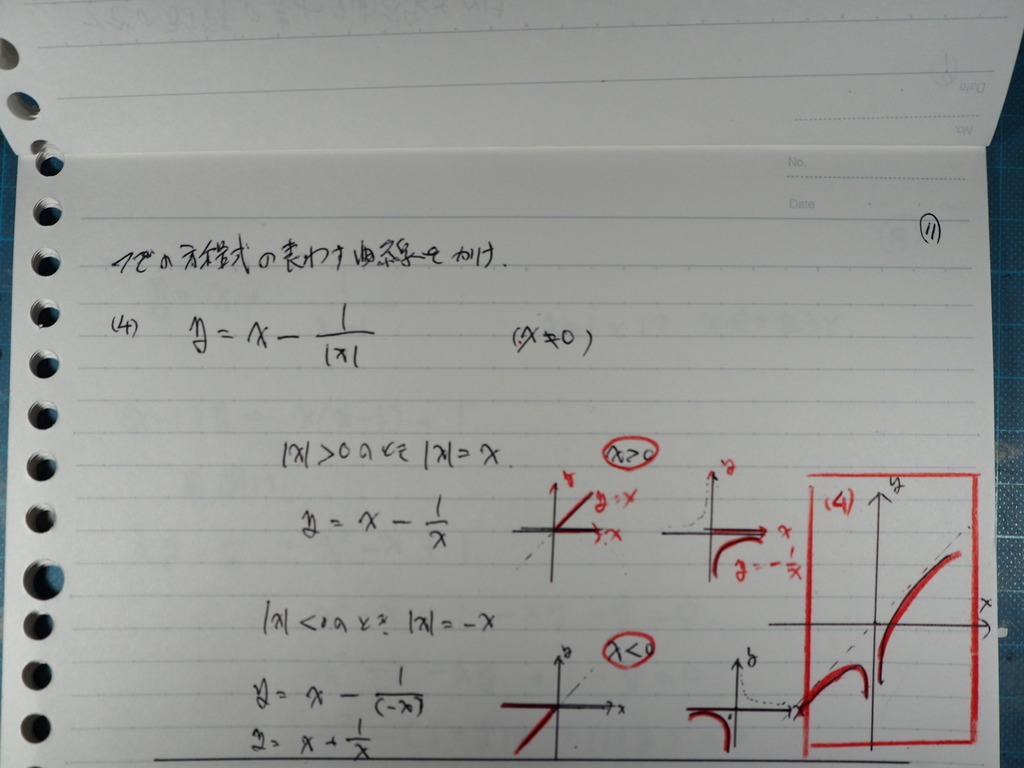 No.
Date
⑪
つぎの方程式の表わす曲線をかけ.
(4) y = x - 1/|x| (x≠0)
|x|>0のとき |x|=x.
x>0
y = x - 1/x
y
y=x
x
y
x
y=-1/x
(4)
y
x
|x|<0のとき |x|=-x
x<0
y = x - 1/(-x)
y = x + 1/x
y
x
y
x